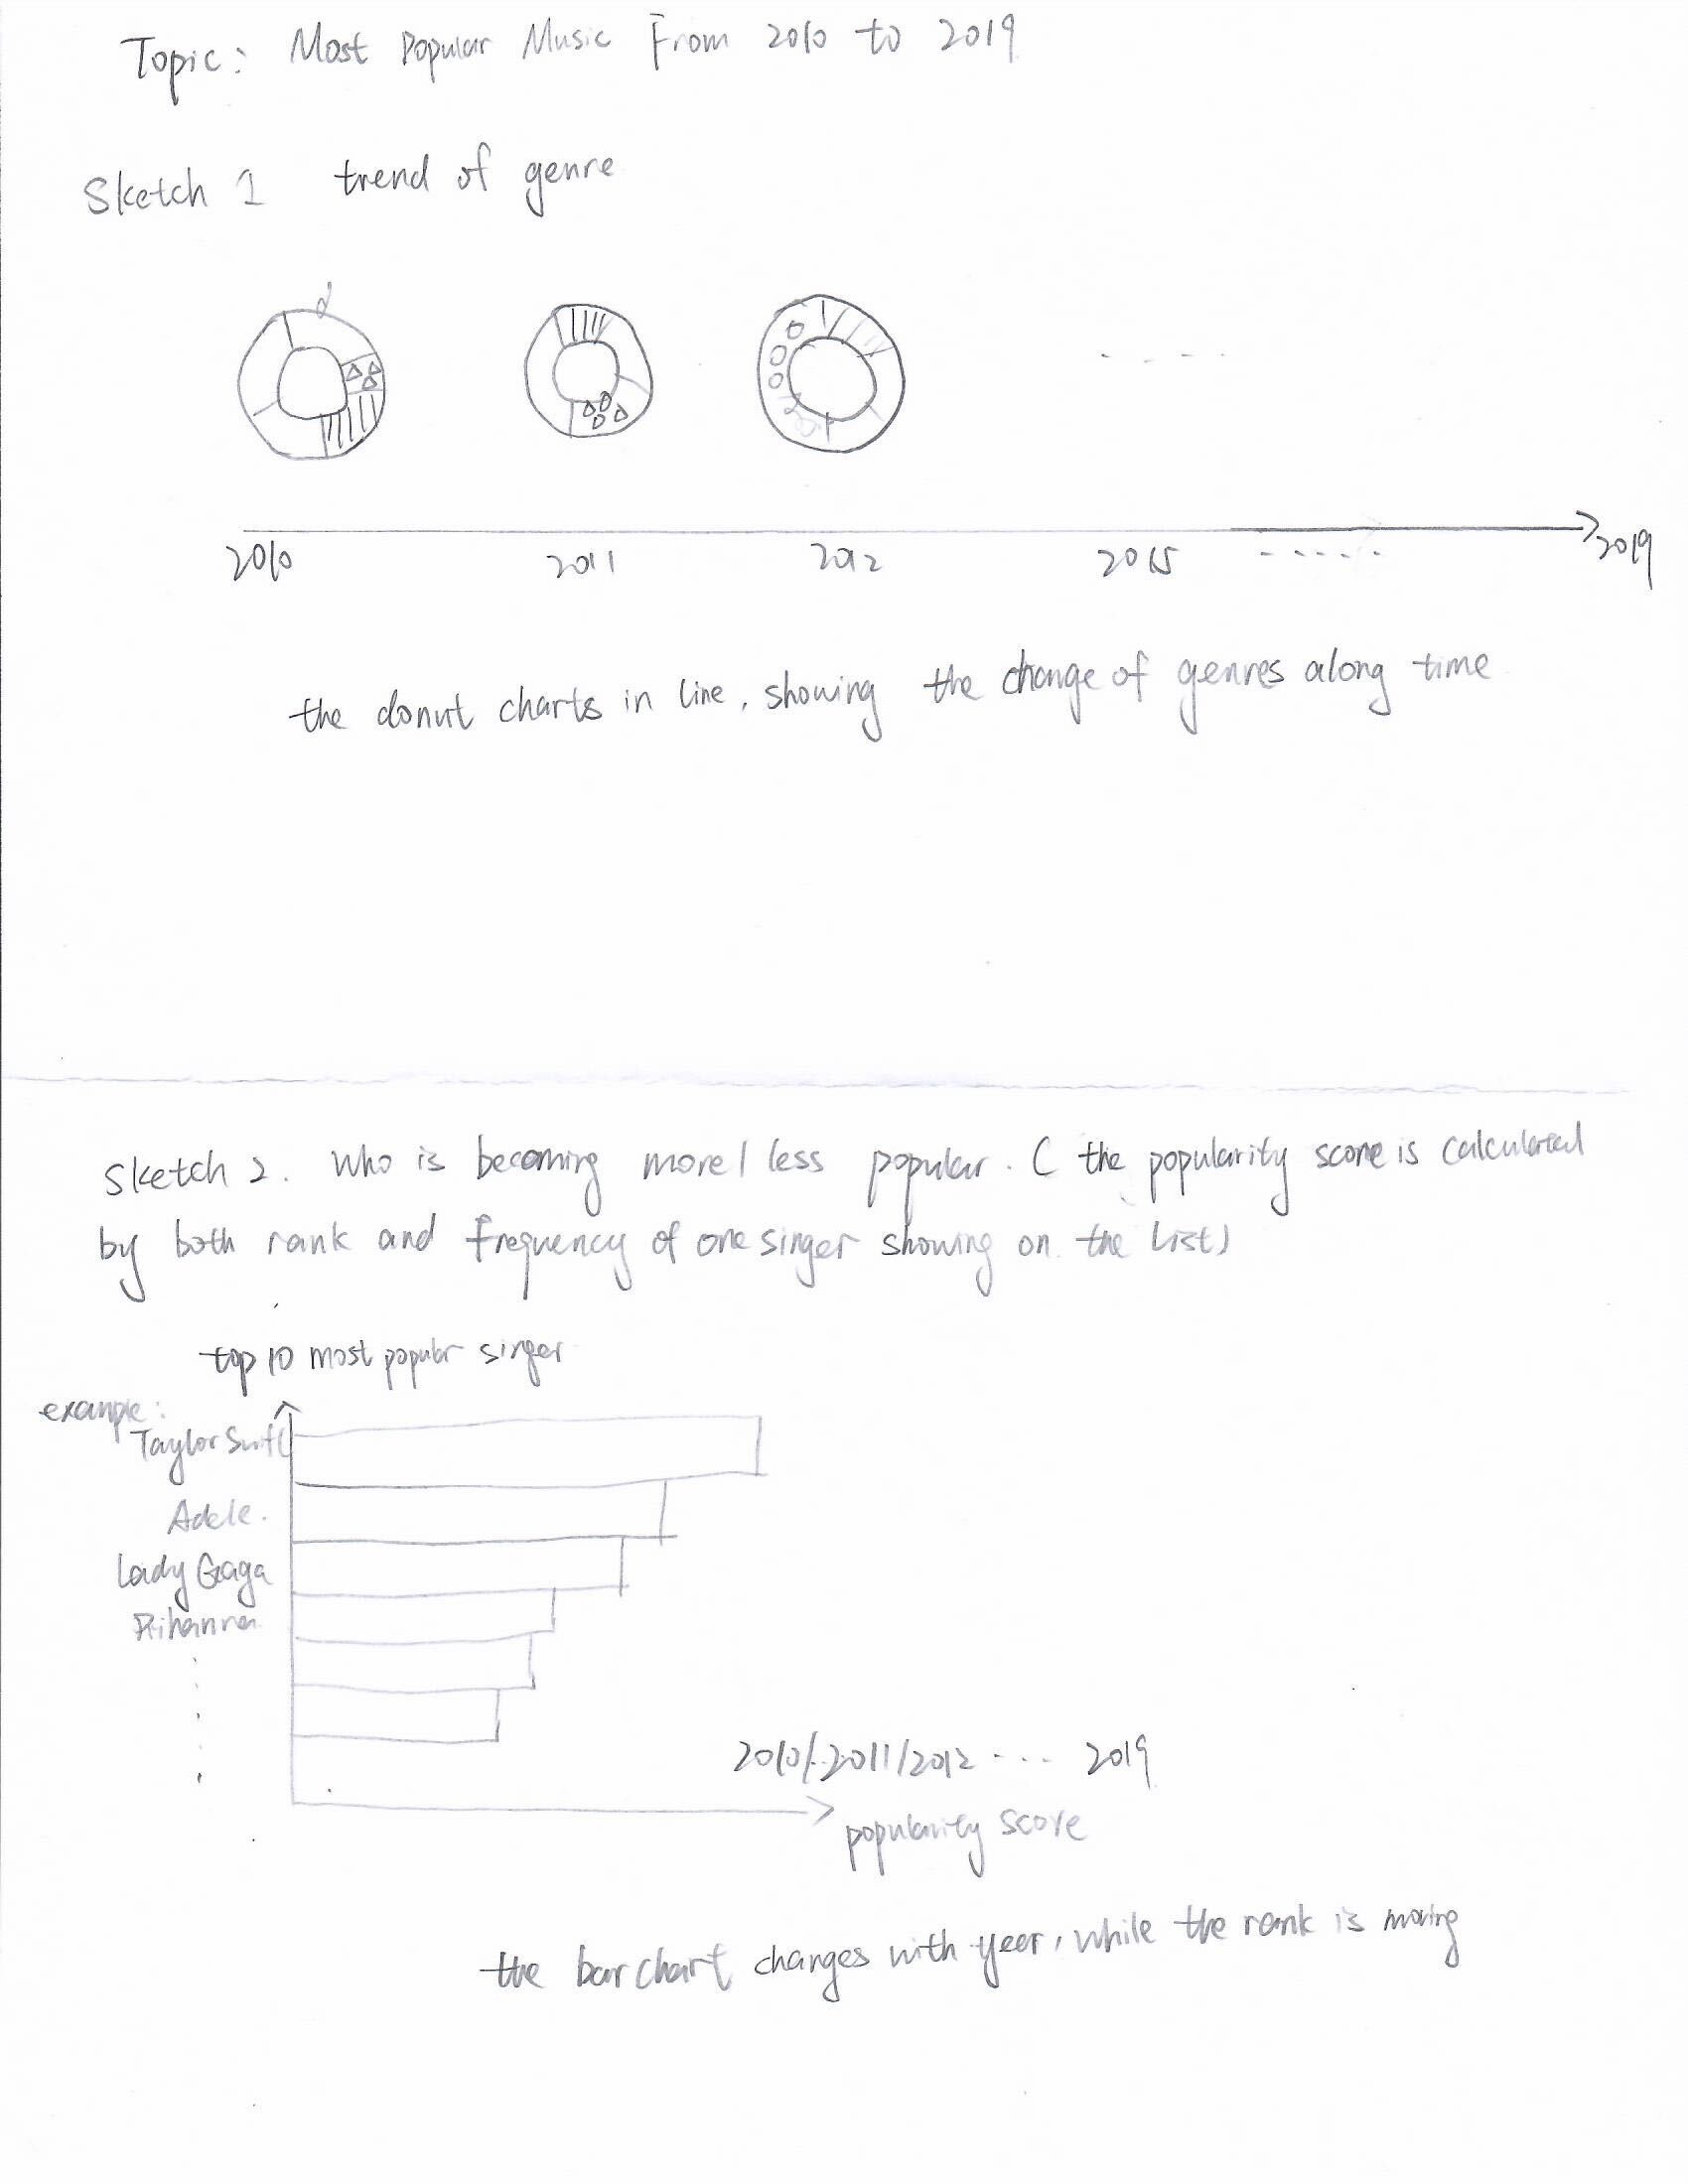 Topic: Most Popular Music From 2010 to 2019
Sketch 1 trend of genre
2010 2011 2012 2015 ----- 2019
the donut charts in line, showing the change of genres along time
Sketch 2. Who is becoming more/less popular. ( the popularity score is calculated
by both rank and frequency of one singer showing on the list)
top 10 most popular singer
example:
Taylor Swift
Adele.
Lady Gaga
Rihanna
2010/2011/2012 ... 2019
popularity score
the bar chart changes with year, while the rank is moving